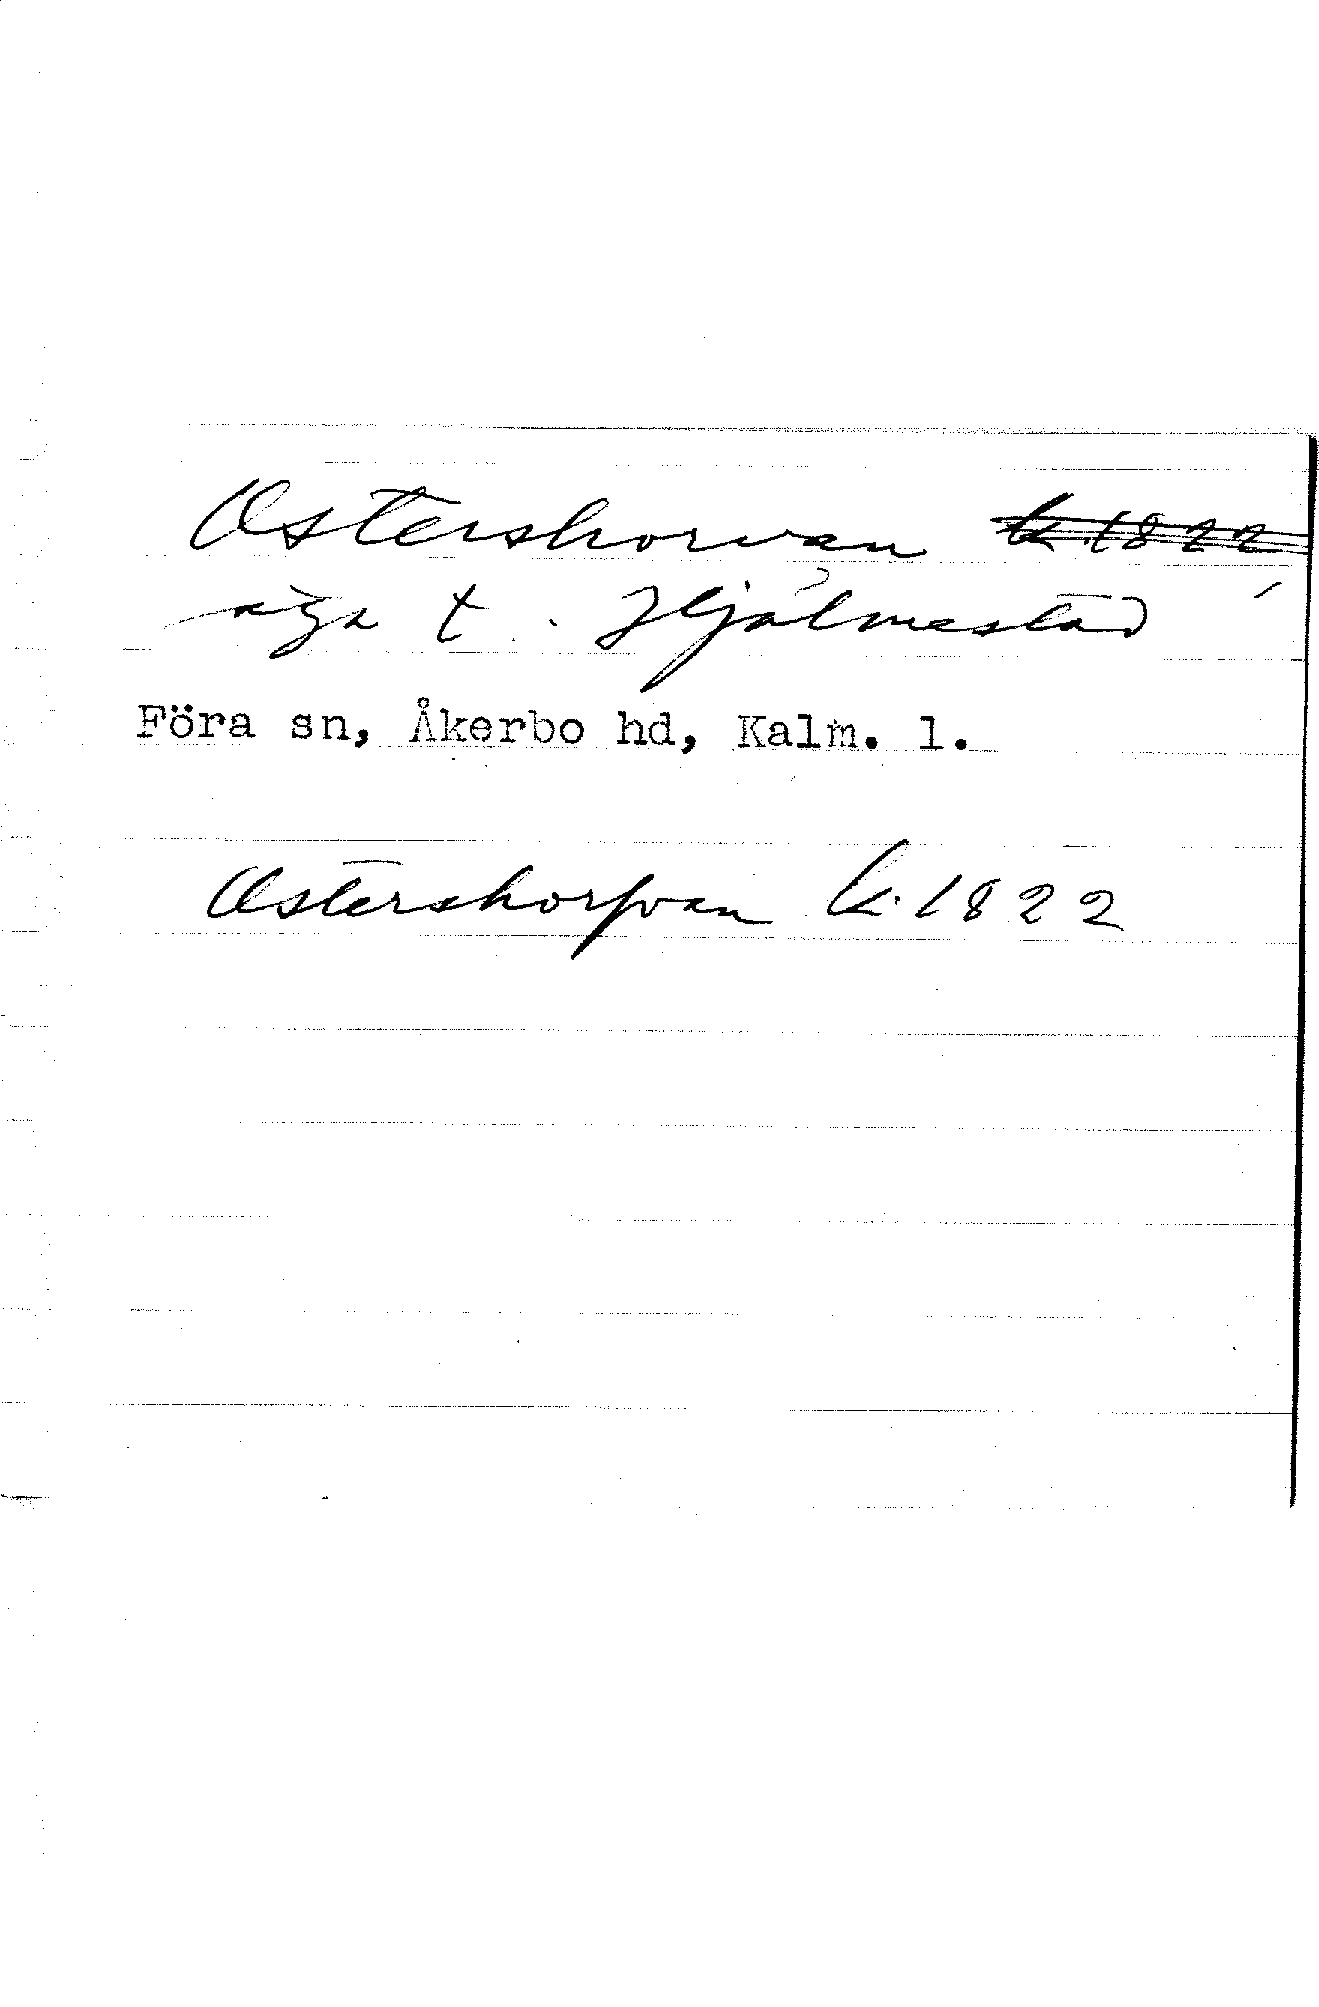 Ostershorvan ~~k. 1822~~
äga t. Hjälmestad
Föra sn, Åkerbo hd, Kalm. l.
Ostershorfvan k. 1822